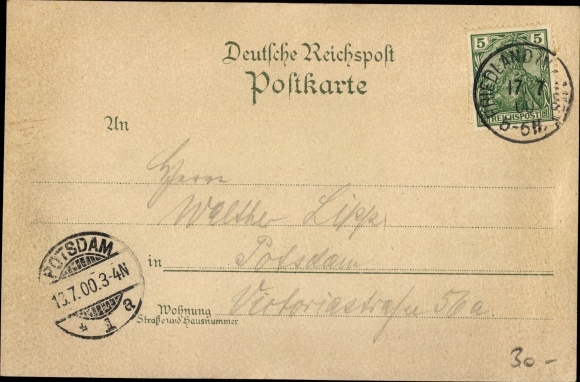 Deutsche Reichspost
Postkarte
5 5
REICHSPOST
17. 7
5-6N.
An
Herrn
Walther Lipp
in Potsdam
Victoriastraße 56a.
Wohnung
Straße und Hausnummer
POTSDAM
7.00.3-4N
* 1 a
30 -